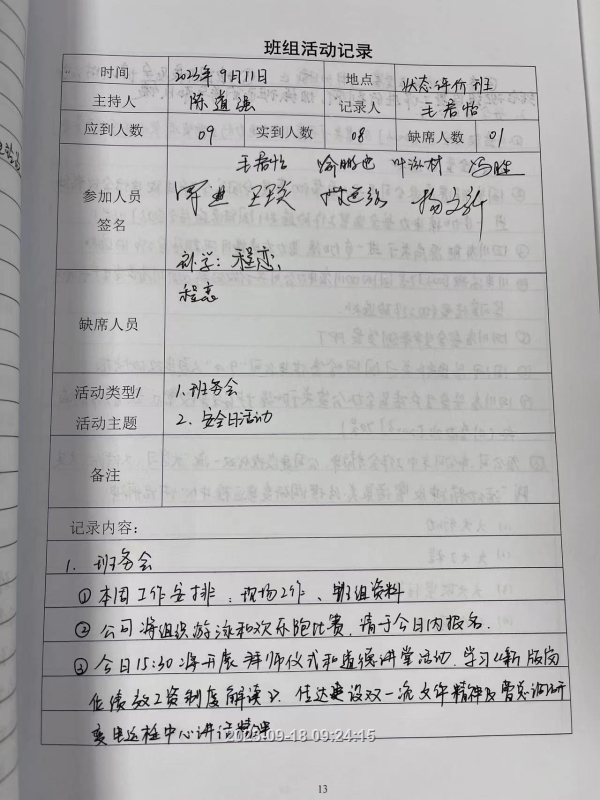 班组活动记录
时间 2023年9月11日 地点 状态评价班
主持人 陈道强 记录人 王君怡
应到人数 09 实到人数 08 缺席人数 01
参加人员
签名
王君怡 喻鹏也 叶泳材 冯胜
补学：程恋
缺席人员 程恋
活动类型/ 1.班务会
活动主题 2.安全日活动
备注
记录内容：
1. 班务会
①本周工作安排：现场工作、班组资料
②公司将组织游泳和欢乐跑比赛，请于今日内报名.
③今日15:30将开展拜师仪式和道德讲堂活动.学习《新版岗
位绩效工资制度解读》、传达建设双一流文件精神及曹总调研
变电运检中心讲话精神
2023-09-18 09:24:15
13